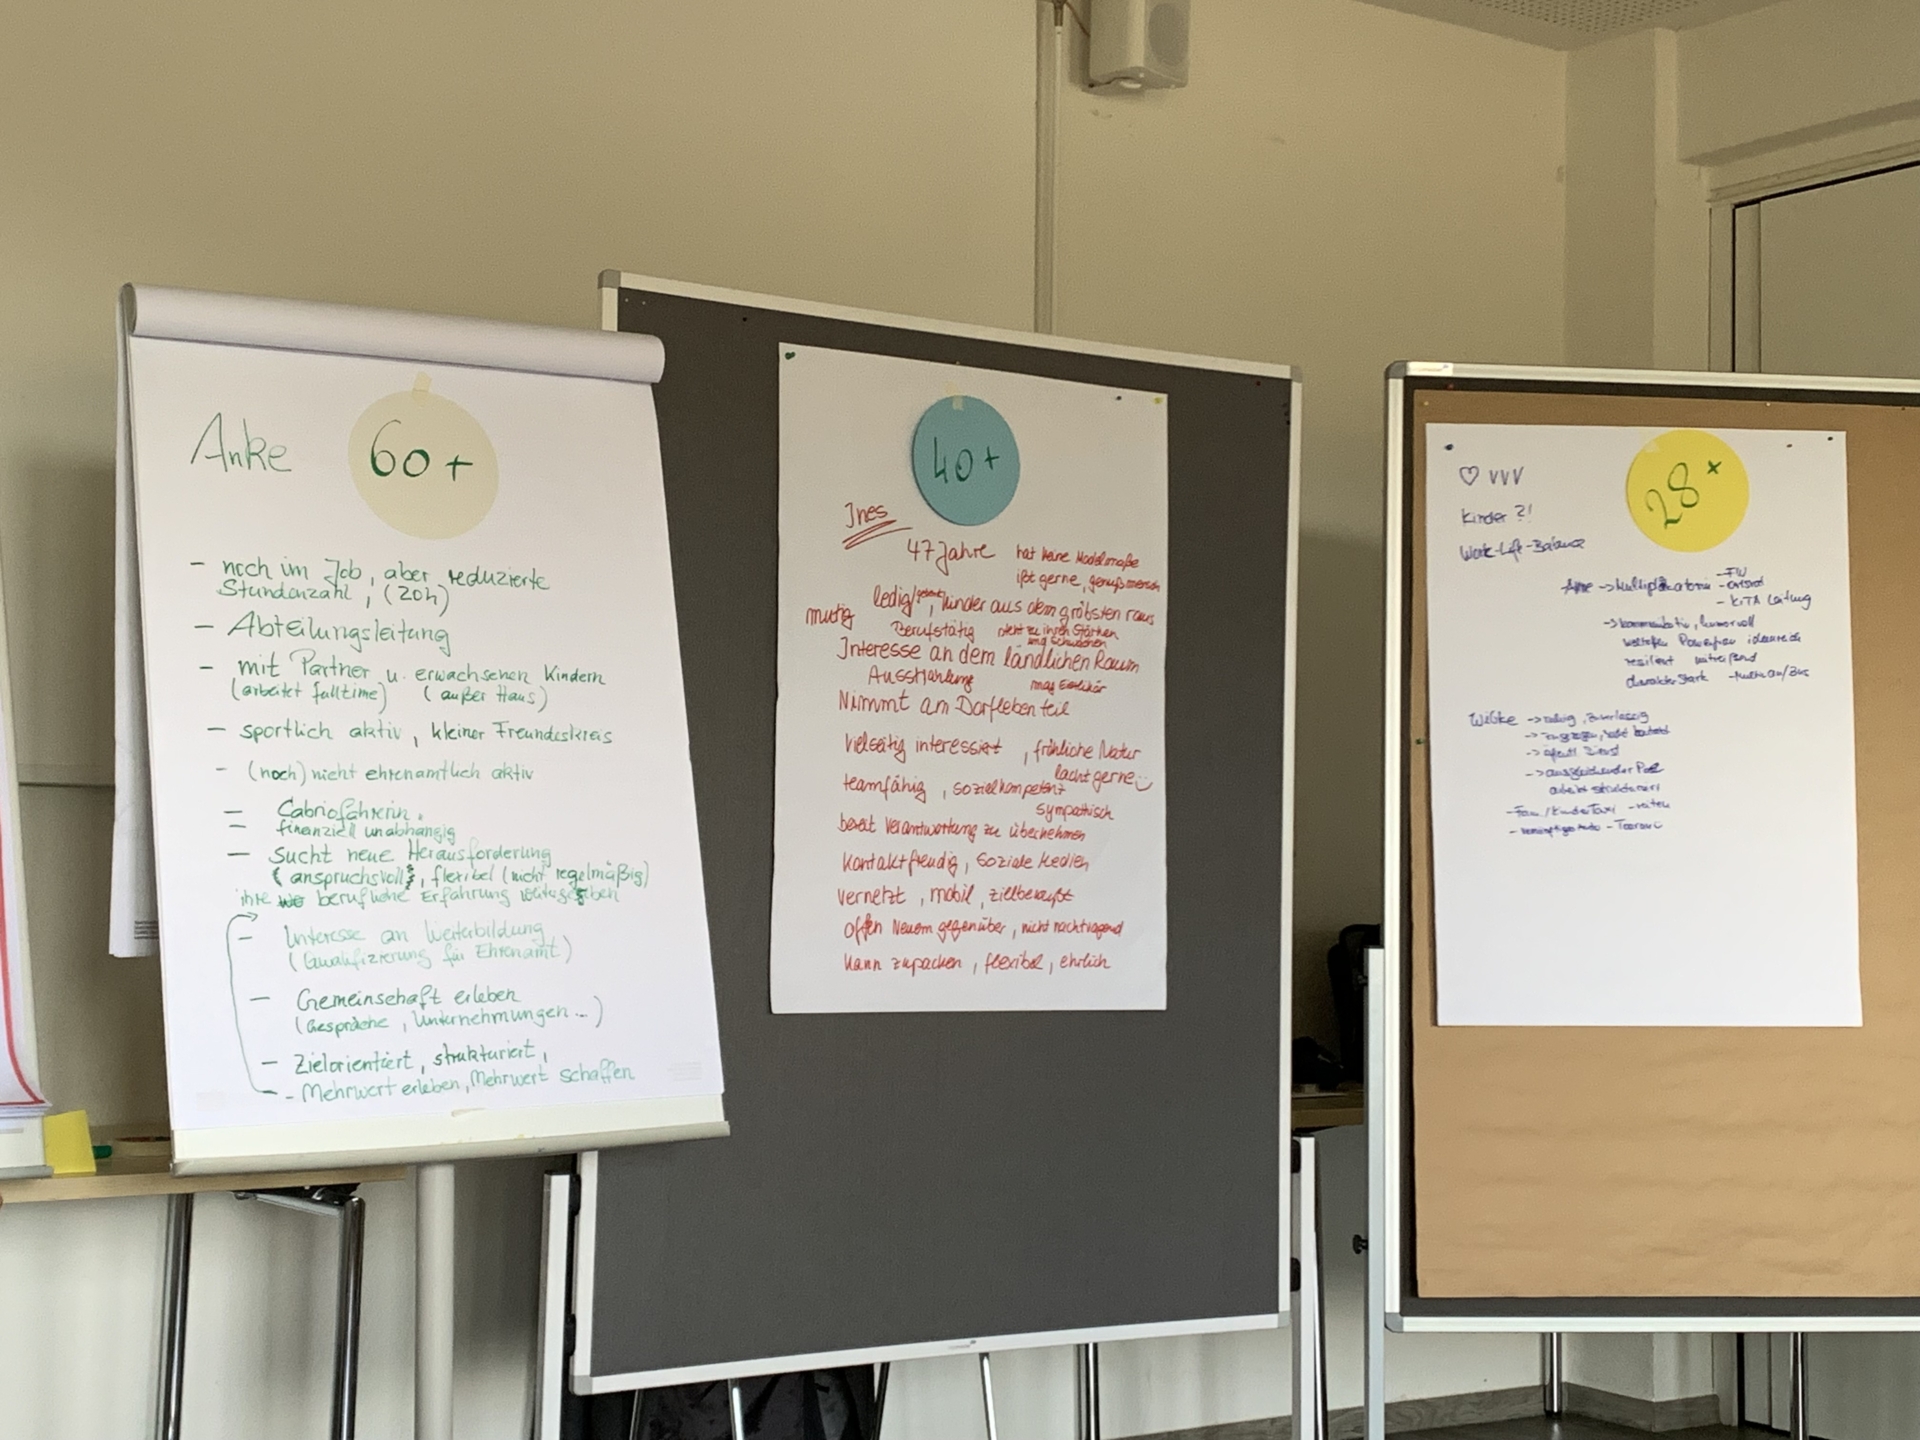 Anke 60+
- noch im Job, aber reduzierte
Stundenzahl, (20h)
- Abteilungsleitung
- mit Partner u. erwachsenen Kindern
(arbeitet fulltime) (außer Haus)
- sportlich aktiv, kleiner Freundeskreis
- (noch) nicht ehrenamtlich aktiv
- Cabriofahrerin.
- finanziell unabhängig
- sucht neue Herausforderung
(anspruchsvoll), flexibel (nicht regelmäßig)
ihre berufliche Erfahrung
- Interesse an Weiterbildung
(Qualifizierung für Ehrenamt)
- Gemeinschaft erleben
(Gespräche, Unternehmungen...)
- Zielorientiert, strukturiert,
- Mehrwert erleben, Mehrwert schaffen
40+
Ines
47 Jahre
hat keine Modelmaße
ißt gerne, genußmensch
ledig, Kinder aus dem gröbsten raus
mutig
Berufstätig steht zu ihren Stärken
und Schwächen
Interesse an dem ländlichen Raum
Ausstrahlung mag
Nimmt am Dorfleben teil
Vielseitig interessiert, fröhliche Natur
lacht gerne
teamfähig, sozialkompetent
sympathisch
bereit Verantwortung zu übernehmen
Kontaktfreudig, Soziale Medien
vernetzt, mobil,
offen Neuem gegenüber, nicht nachtragend
kann zupacken, flexibel, ehrlich
28+
♡ VVV
Kinder ?!
Work-Life-Balance
-> 
- KiTA Leitung
-> kommunikativ, humorvoll
Powerfrau ideenreich
resilient mitreißend
charakterstark
Wibke -> ruhig, zuverlässig
->
-> öffentl. Dienst
-> ausgleichender Pol
arbeitet strukturiert